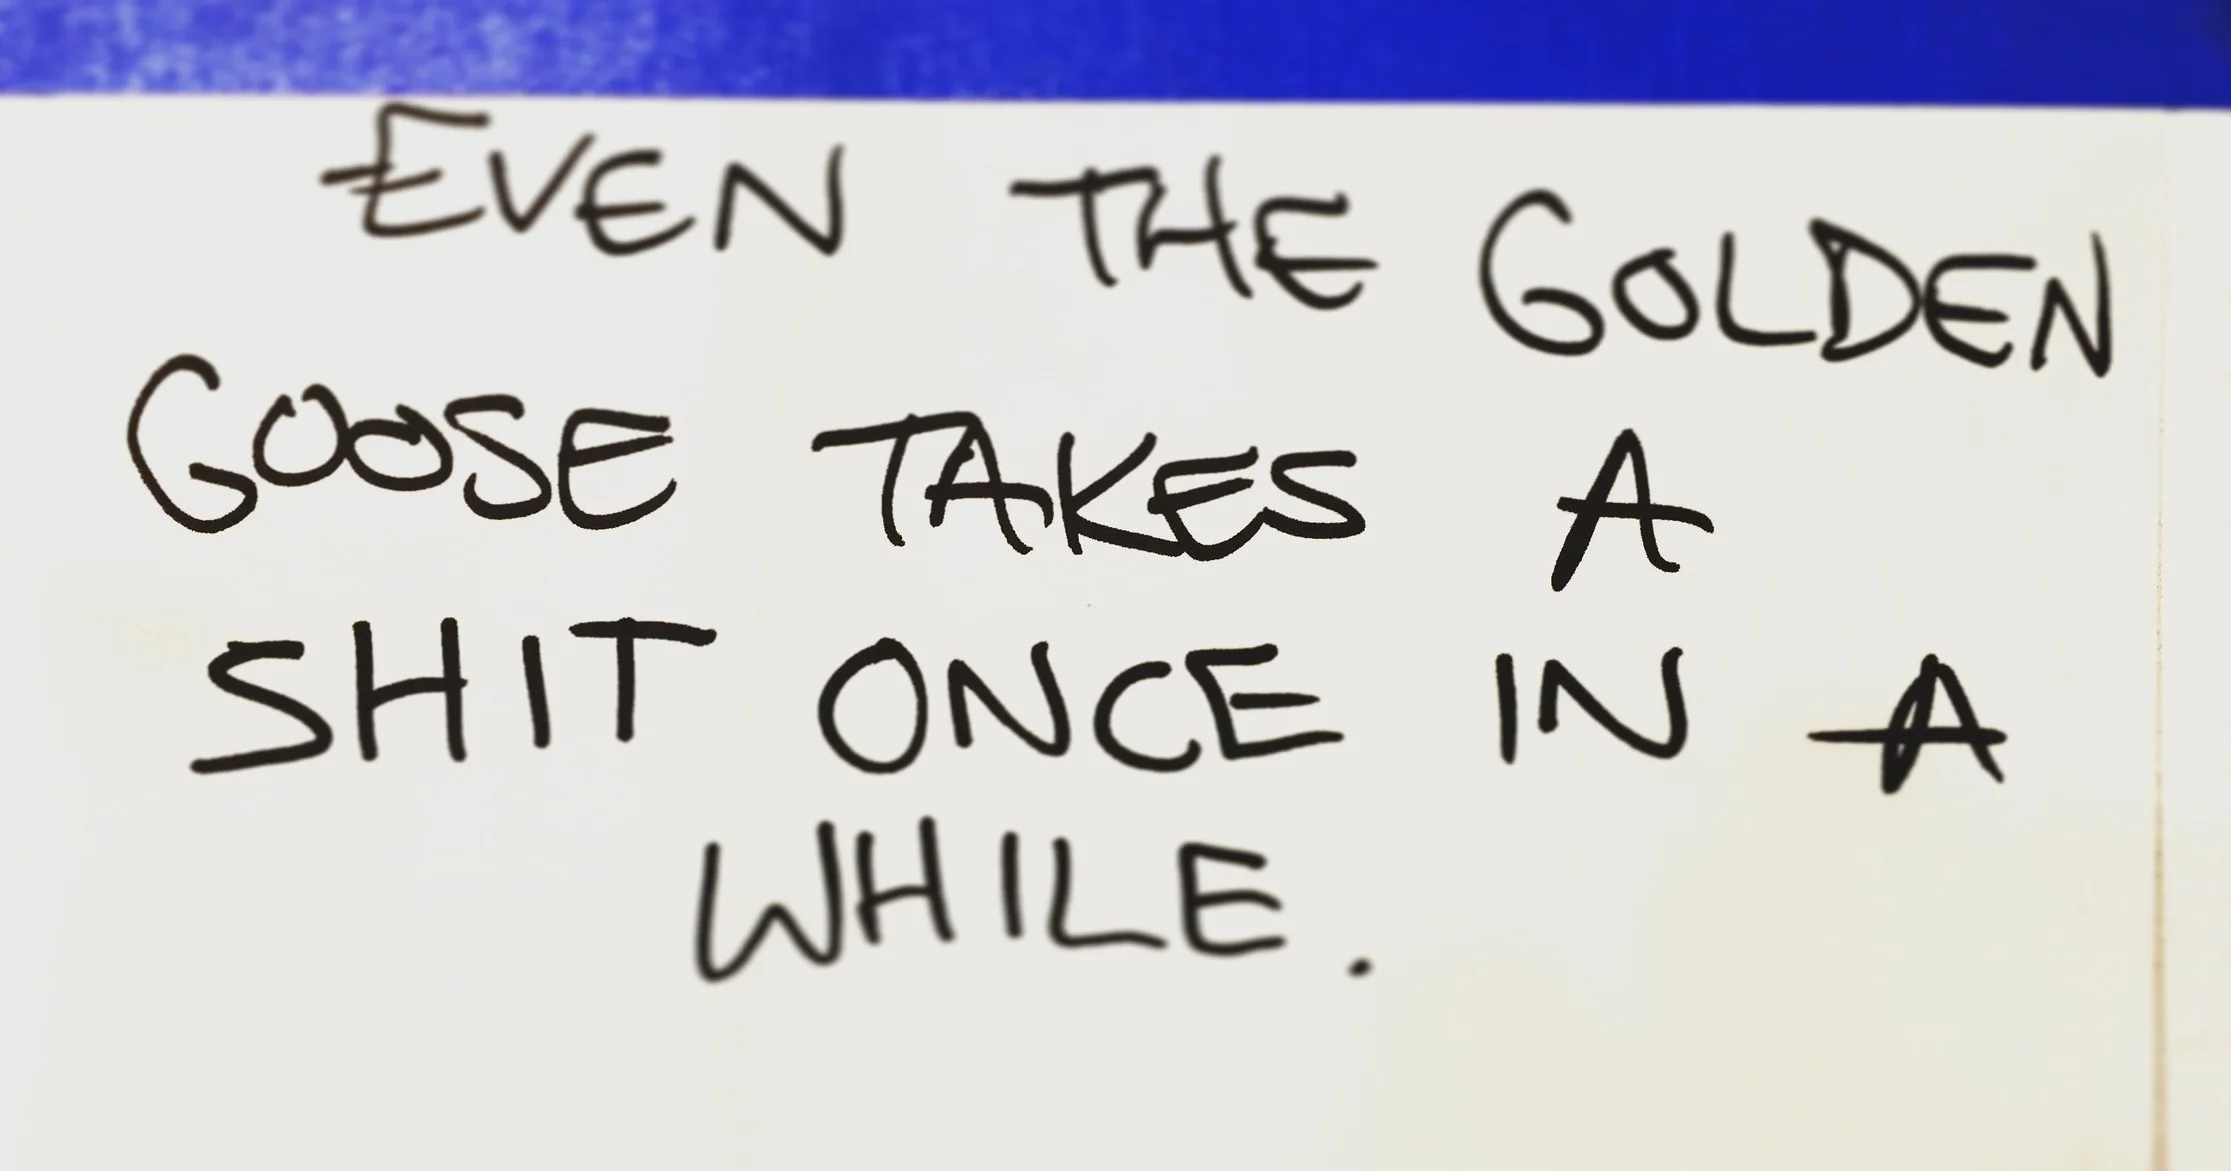 EVEN THE GOLDEN
GOOSE TAKES A
SHIT ONCE IN A
WHILE.